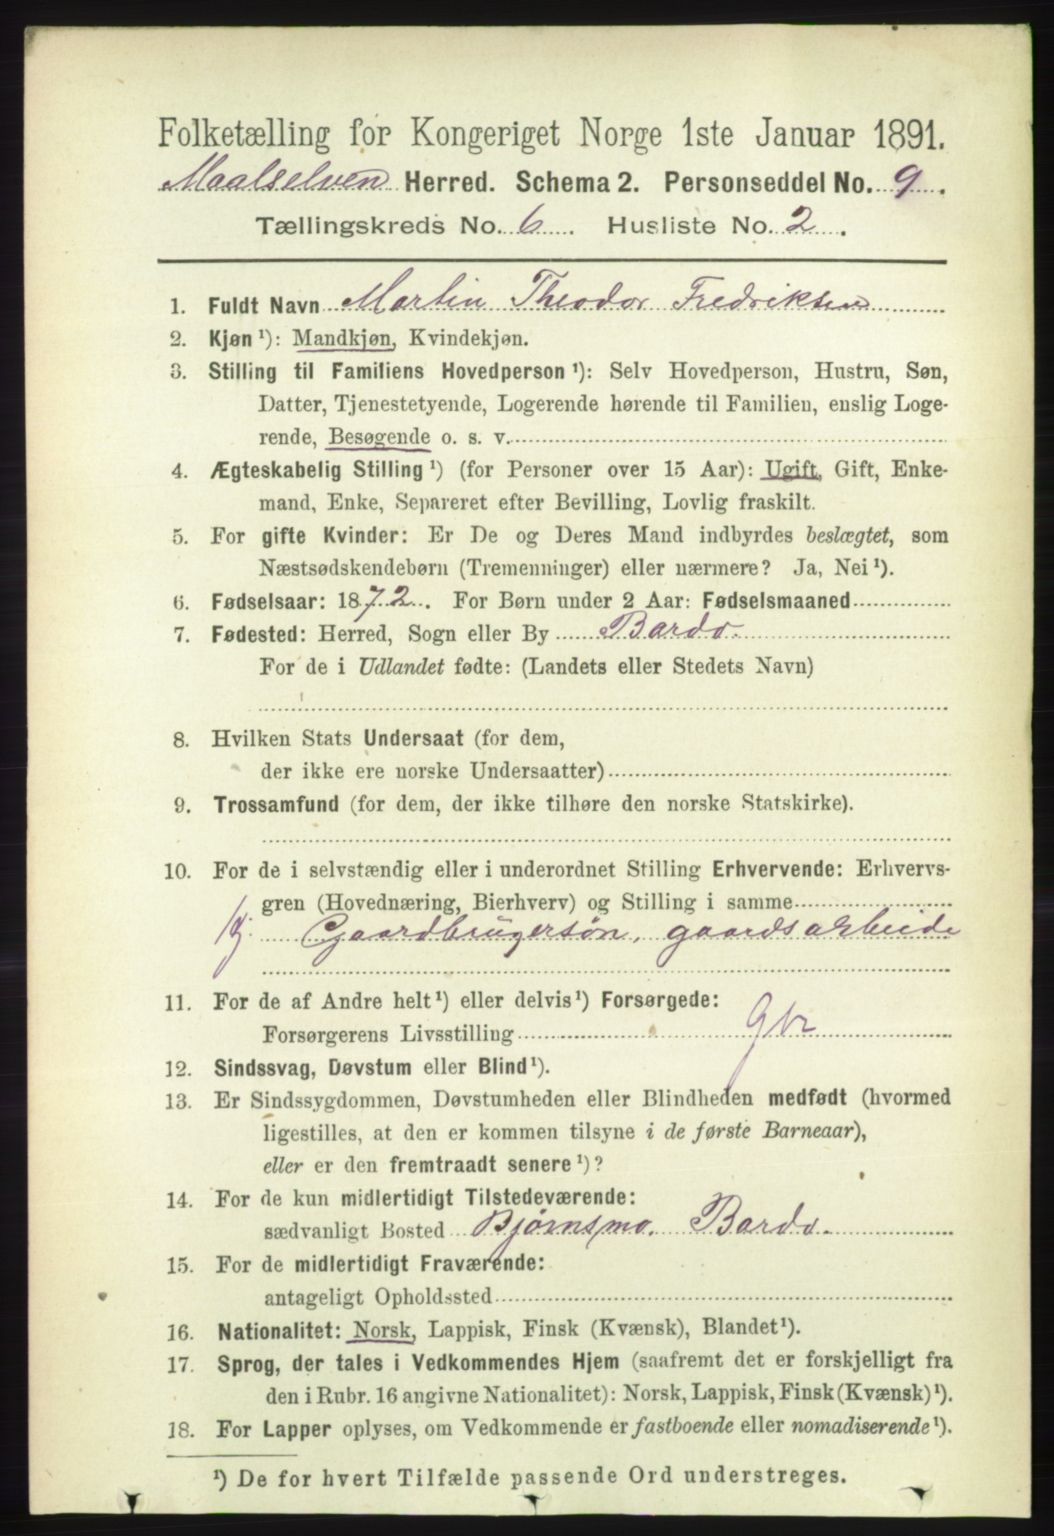 Folketælling for Kongeriget Norge 1ste Januar 1891.
Maalselven Herred. Schema 2. Personseddel No. 9.
Tællingskreds No. 6. Husliste No. 2.
1. Fuldt Navn Martin Theodor Fredriksen
2. Kjøn ¹): Mandkjøn, Kvindekjøn.
3. Stilling til Familiens Hovedperson ¹): Selv Hovedperson, Hustru, Søn,
Datter, Tjenestetyende, Logerende hørende til Familien, enslig Loge-
rende, Besøgende o. s. v.
4. Ægteskabelig Stilling ¹) (for Personer over 15 Aar): Ugift, Gift, Enke-
mand, Enke, Separeret efter Bevilling, Lovlig fraskilt.
5. For gifte Kvinder: Er De og Deres Mand indbyrdes beslægtet, som
Næstsødskendebørn (Tremenninger) eller nærmere? Ja, Nei ¹).
6. Fødselsaar: 1872. For Børn under 2 Aar: Fødselsmaaned
7. Fødested: Herred, Sogn eller By Bardo.
For de i Udlandet fødte: (Landets eller Stedets Navn)
8. Hvilken Stats Undersaat (for dem,
der ikke ere norske Undersaatter)
9. Trossamfund (for dem, der ikke tilhøre den norske Statskirke).
10. For de i selvstændig eller i underordnet Stilling Erhvervende: Erhvervs-
gren (Hovednæring, Bierhverv) og Stilling i samme
Gaardbrugersøn, gaardsarbeide
11. For de af Andre helt ¹) eller delvis ¹) Forsørgede:
Forsørgerens Livsstilling Gbr
12. Sindssvag, Døvstum eller Blind ¹).
13. Er Sindssygdommen, Døvstumheden eller Blindheden medfødt (hvormed
ligestilles, at den er kommen tilsyne i de første Barneaar),
eller er den fremtraadt senere ¹)?
14. For de kun midlertidigt Tilstedeværende:
sædvanligt Bosted Bjørnsmo. Bardo.
15. For de midlertidigt Fraværende:
antageligt Opholdssted
16. Nationalitet: Norsk, Lappisk, Finsk (Kvænsk), Blandet ¹).
17. Sprog, der tales i Vedkommendes Hjem (saafremt det er forskjelligt fra
den i Rubr. 16 angivne Nationalitet): Norsk, Lappisk, Finsk (Kvænsk) ¹).
18. For Lapper oplyses, om Vedkommende er fastboende eller nomadiserende ¹).
¹) De for hvert Tilfælde passende Ord understreges.